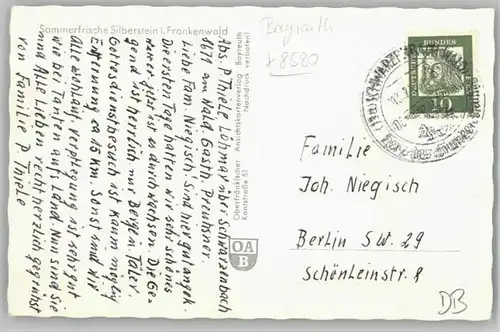 Sommerfrische Silberstein i. Frankenwald
Bayreuth
+8580
Abs. P. Thiele Löhmar über Schwarzenbach
8671 am Wald. Gasth. Preußner.
Liebe Fam. Niegisch. Sind hier gut angek.
Die ersten Tage hatten wir sehr schönes
jetzt ist es durchwachsen. Die Ge-
gend ist herrlich mit Bergen, Täler.
Gottesdienstbesuch ist kaum möglig
Entfernung ca 15 Km. Sonst sind wir
alle wohlauf. verpflegung ist sehr gut
wie bei Tanten aufs Land. Nun sind Sie
und alle Lieben recht herzlich gegrüßt
von Familie P. Thiele
Oberfränkischer Ansichtskartenverlag Bayreuth
Kantstraße 51 Nachdruck verboten!
OA
B
DEUTSCHE BUNDESPOST
10
SCHWARZENBACH
Familie
Joh. Niegisch
Berlin S.W. 29
Schönleinstr. 8
DB